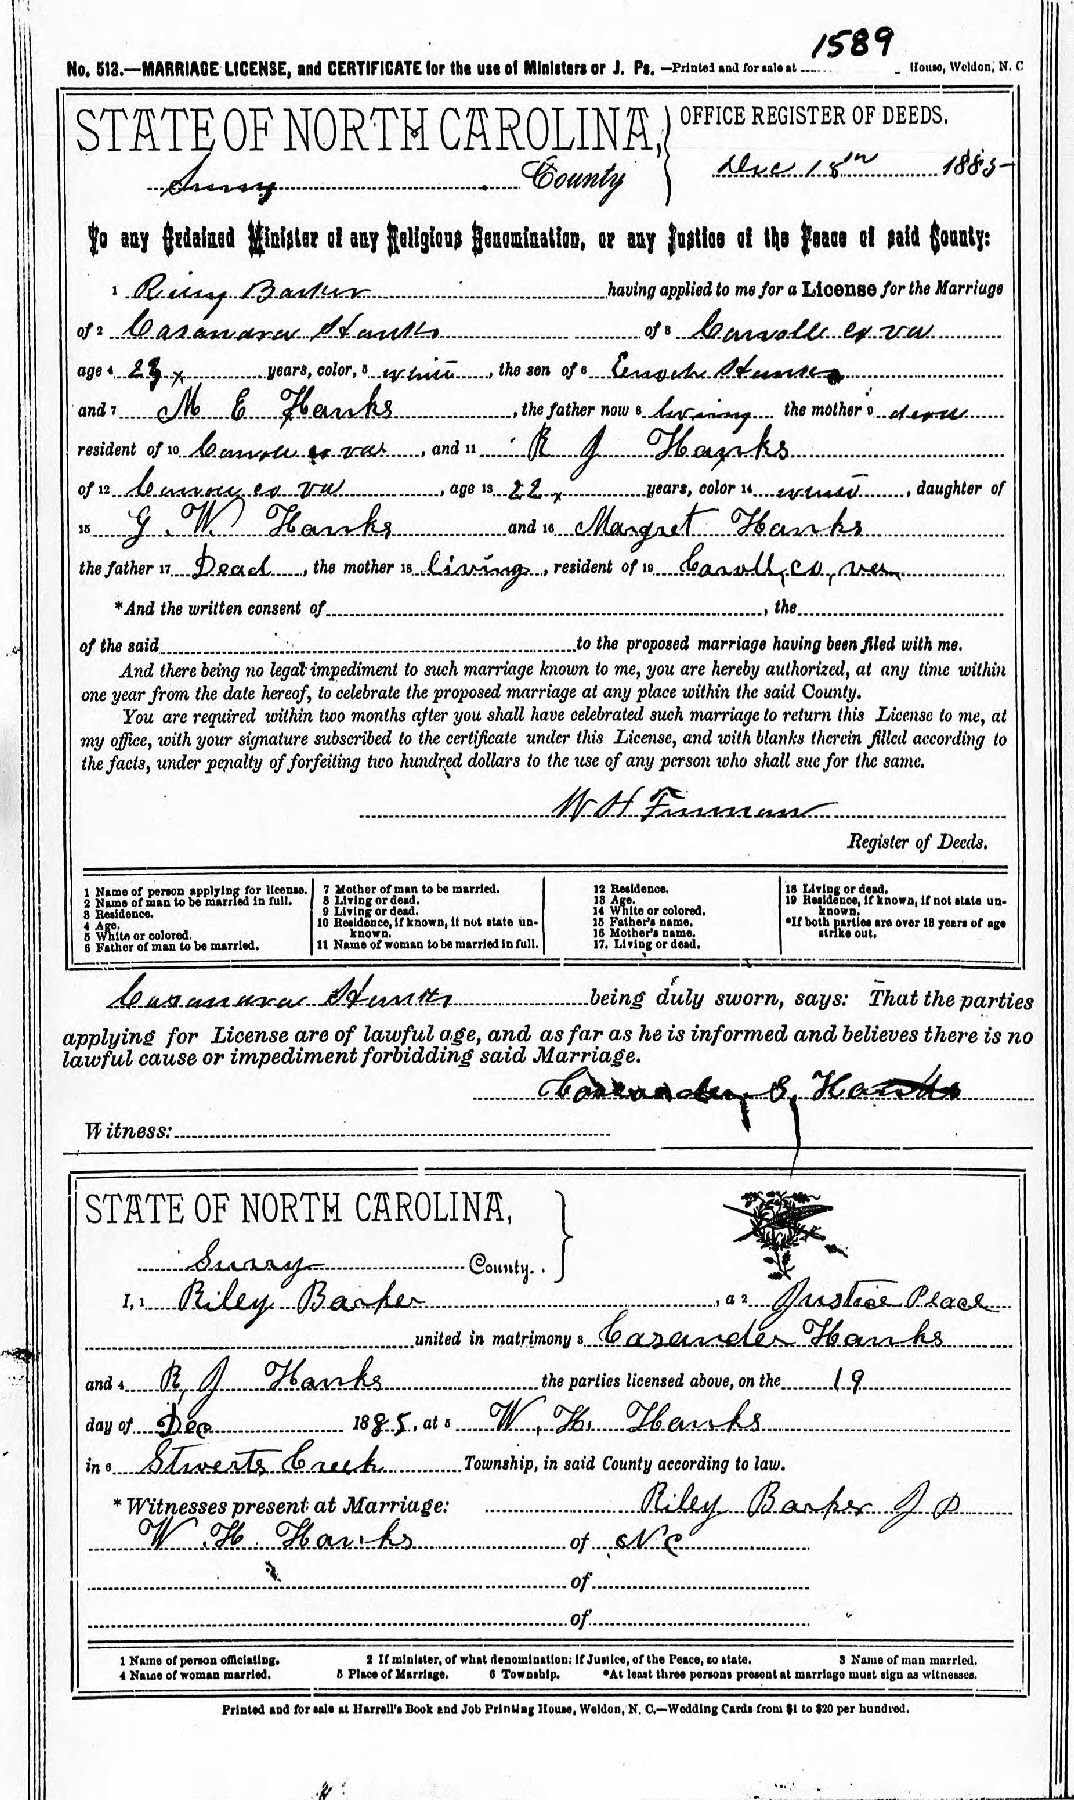 1589
No. 513.—MARRIAGE LICENSE, and CERTIFICATE for the use of Ministers or J. Ps. —Printed and for sale at House, Weldon, N. C
STATE OF NORTH CAROLINA, OFFICE REGISTER OF DEEDS.
Surry County Dec 18th 1885
To any Ordained Minister of any Religious Denomination, or any Justice of the Peace of said County:
1 Riley Barker having applied to me for a License for the Marriage
of 2 Casandra Hanks of 3 Carroll co va
age 4 23 years, color, 5 white, the son of 6 Enoch Hanks
and 7 M E Hanks, the father now 8 living the mother 9 dead
resident of 10 Carroll co va, and 11 R J Hanks
of 12 Carroll co va, age 13 22 years, color 14 white, daughter of
15 G. W. Hanks and 16 Margret Hanks
the father 17 Dead, the mother 18 living, resident of 19 Caroll, co, va
*And the written consent of , the
of the said to the proposed marriage having been filed with me.
And there being no legal impediment to such marriage known to me, you are hereby authorized, at any time within
one year from the date hereof, to celebrate the proposed marriage at any place within the said County.
You are required within two months after you shall have celebrated such marriage to return this License to me, at
my office, with your signature subscribed to the certificate under this License, and with blanks therein filled according to
the facts, under penalty of forfeiting two hundred dollars to the use of any person who shall sue for the same.
W H
Register of Deeds.
1 Name of person applying for license.
2 Name of man to be married in full.
3 Residence.
4 Age.
5 White or colored.
6 Father of man to be married.
7 Mother of man to be married.
8 Living or dead.
9 Living or dead.
10 Residence, if known, if not state un-
known.
11 Name of woman to be married in full.
12 Residence.
13 Age.
14 White or colored.
15 Father's name.
16 Mother's name.
17. Living or dead.
18 Living or dead.
19 Residence, if known, if not state un-
known.
*If both parties are over 18 years of age
strike out.
Casandra Hanks being duly sworn, says: That the parties
applying for License are of lawful age, and as far as he is informed and believes there is no
lawful cause or impediment forbidding said Marriage.
Witness:
STATE OF NORTH CAROLINA,
Surry County.
I, 1 Riley Barker, a 2 Justice Peace
united in matrimony 3 Casander Hanks
and 4 R, J Hanks the parties licensed above, on the 19
day of Dec 1885, at 5 W. H. Hanks
in 6 Stwerts Creek Township, in said County according to law.
*Witnesses present at Marriage: Riley Barker J P
W. H. Hanks of NC
of
of
1 Name of person officiating. 2 If minister, of what denomination; if Justice, of the Peace, so state. 3 Name of man married.
4 Name of woman married. 5 Place of Marriage. 6 Township. *At least three persons present at marriage must sign as witnesses.
Printed and for sale at Harrell's Book and Job Printing House, Weldon, N. C.—Wedding Cards from $1 to $20 per hundred.